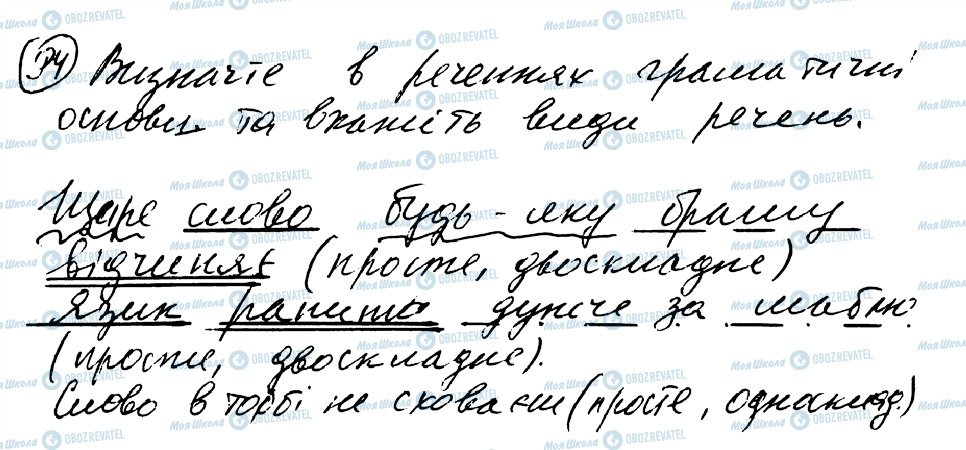 34 Визначте в реченнях граматичні
основи та вкажіть види речень.
Щире слово будь-яку браму
відчиняє (просте, двоскладне)
Язик ранить дужче за шаблю
(просте, двоскладне).
Слово в торбі не сховаєш (просте, односклад.)